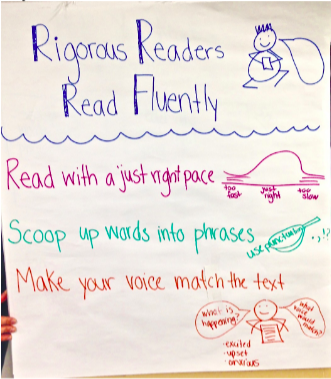 Rigorous Readers
Read Fluently
Read with a just right pace
too fast
just right
too slow
Scoop up words into phrases
use punctuation
. , ! ?
Make your voice match the text
what is happening?
what voice would match?
· excited
· upset
· anxious